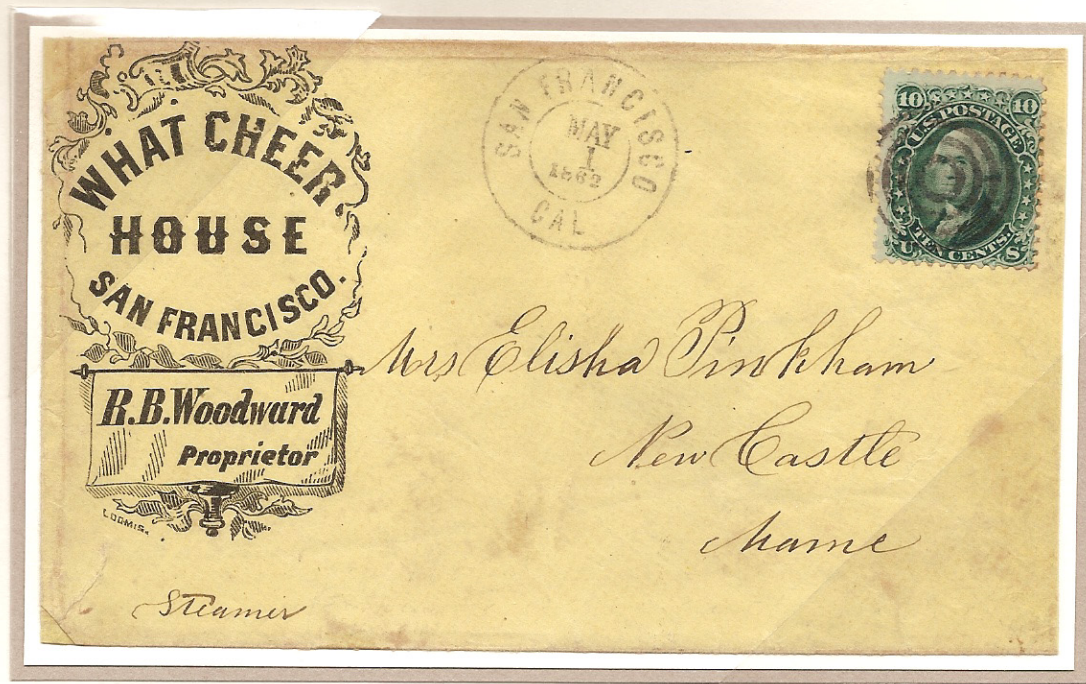 WHAT CHEER
HOUSE
SAN FRANCISCO.
R.B. Woodward
Proprietor
LOOMIS.
SAN FRANCISCO
MAY
1
1862
CAL
10 10
U.S. POSTAGE
TEN CENTS.
U S
Mrs Elisha Pinkham
New Castle
Maine
Steamer